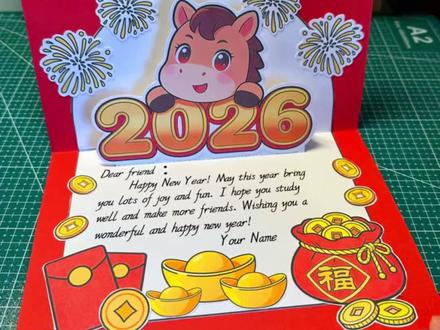 A2
2026
Dear friend :
Happy New Year! May this year bring
you lots of joy and fun. I hope you study
well and make more friends. Wishing you a
wonderful and happy new year!
Your Name
福